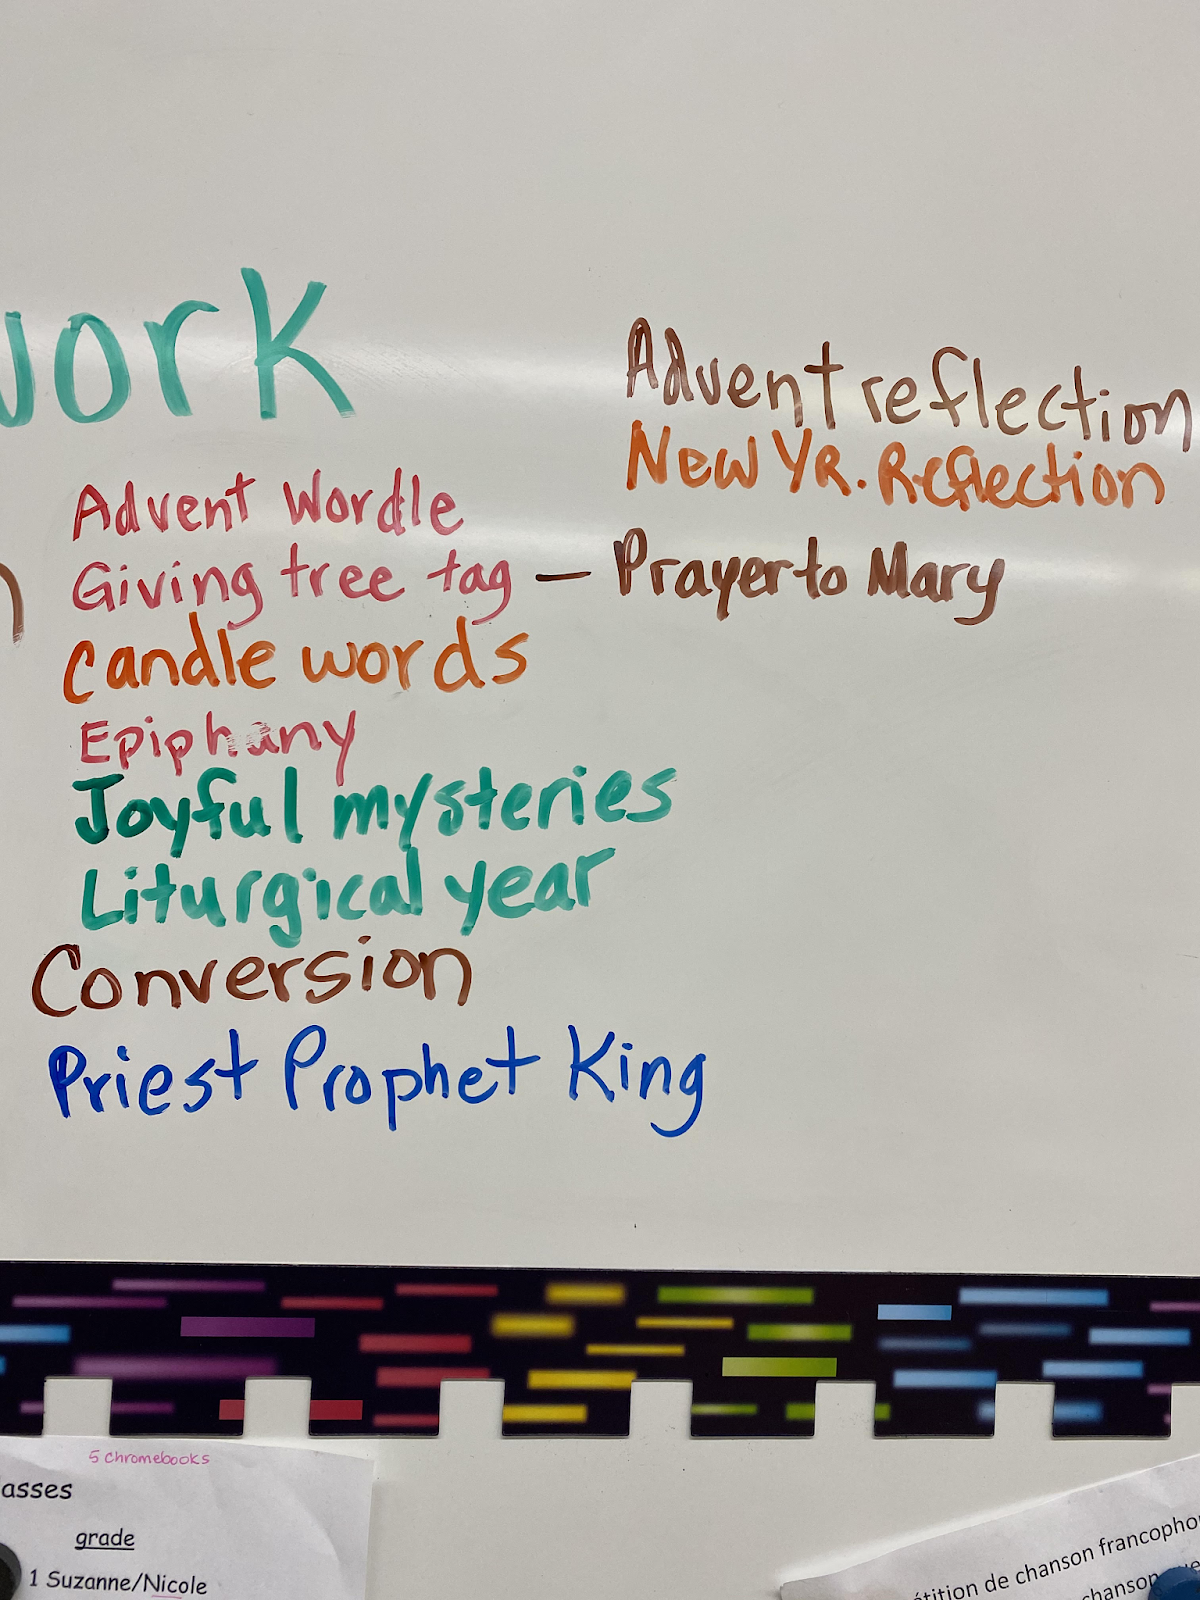 work
Advent Wordle
Giving tree tag — Prayer to Mary
Candle words
Epiphany
Joyful mysteries
Liturgical year
Conversion
Priest Prophet King
Advent reflection
New YR. Reflection
5 chromebooks
asses
grade
1 Suzanne/Nicole
étition de chanson francopho
chanson